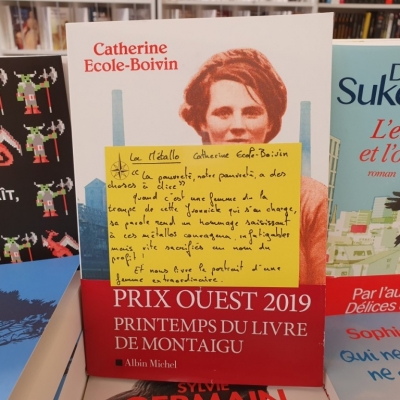 Catherine
Ecole-Boivin
La Métallo Catherine Ecole-Boivin
"La pauvreté, notre pauvreté, a des
choses à dire"
Quand c'est une femme de la
trempe de cette Yvonnick qui s'en charge,
sa parole rend un hommage saisissant
à ces métallos courageux, infatigables
mais vite sacrifiés au nom du
profit !
Et nous livre le portrait d'une
femme extraordinaire.
PRIX OUEST 2019
PRINTEMPS DU LIVRE
DE MONTAIGU
Albin Michel
IT,
D
Suke
L'e
et l'o
roman
Par l'au
Délices
Sophi
Qui ne
ne
SYLVIE
GERMAIN